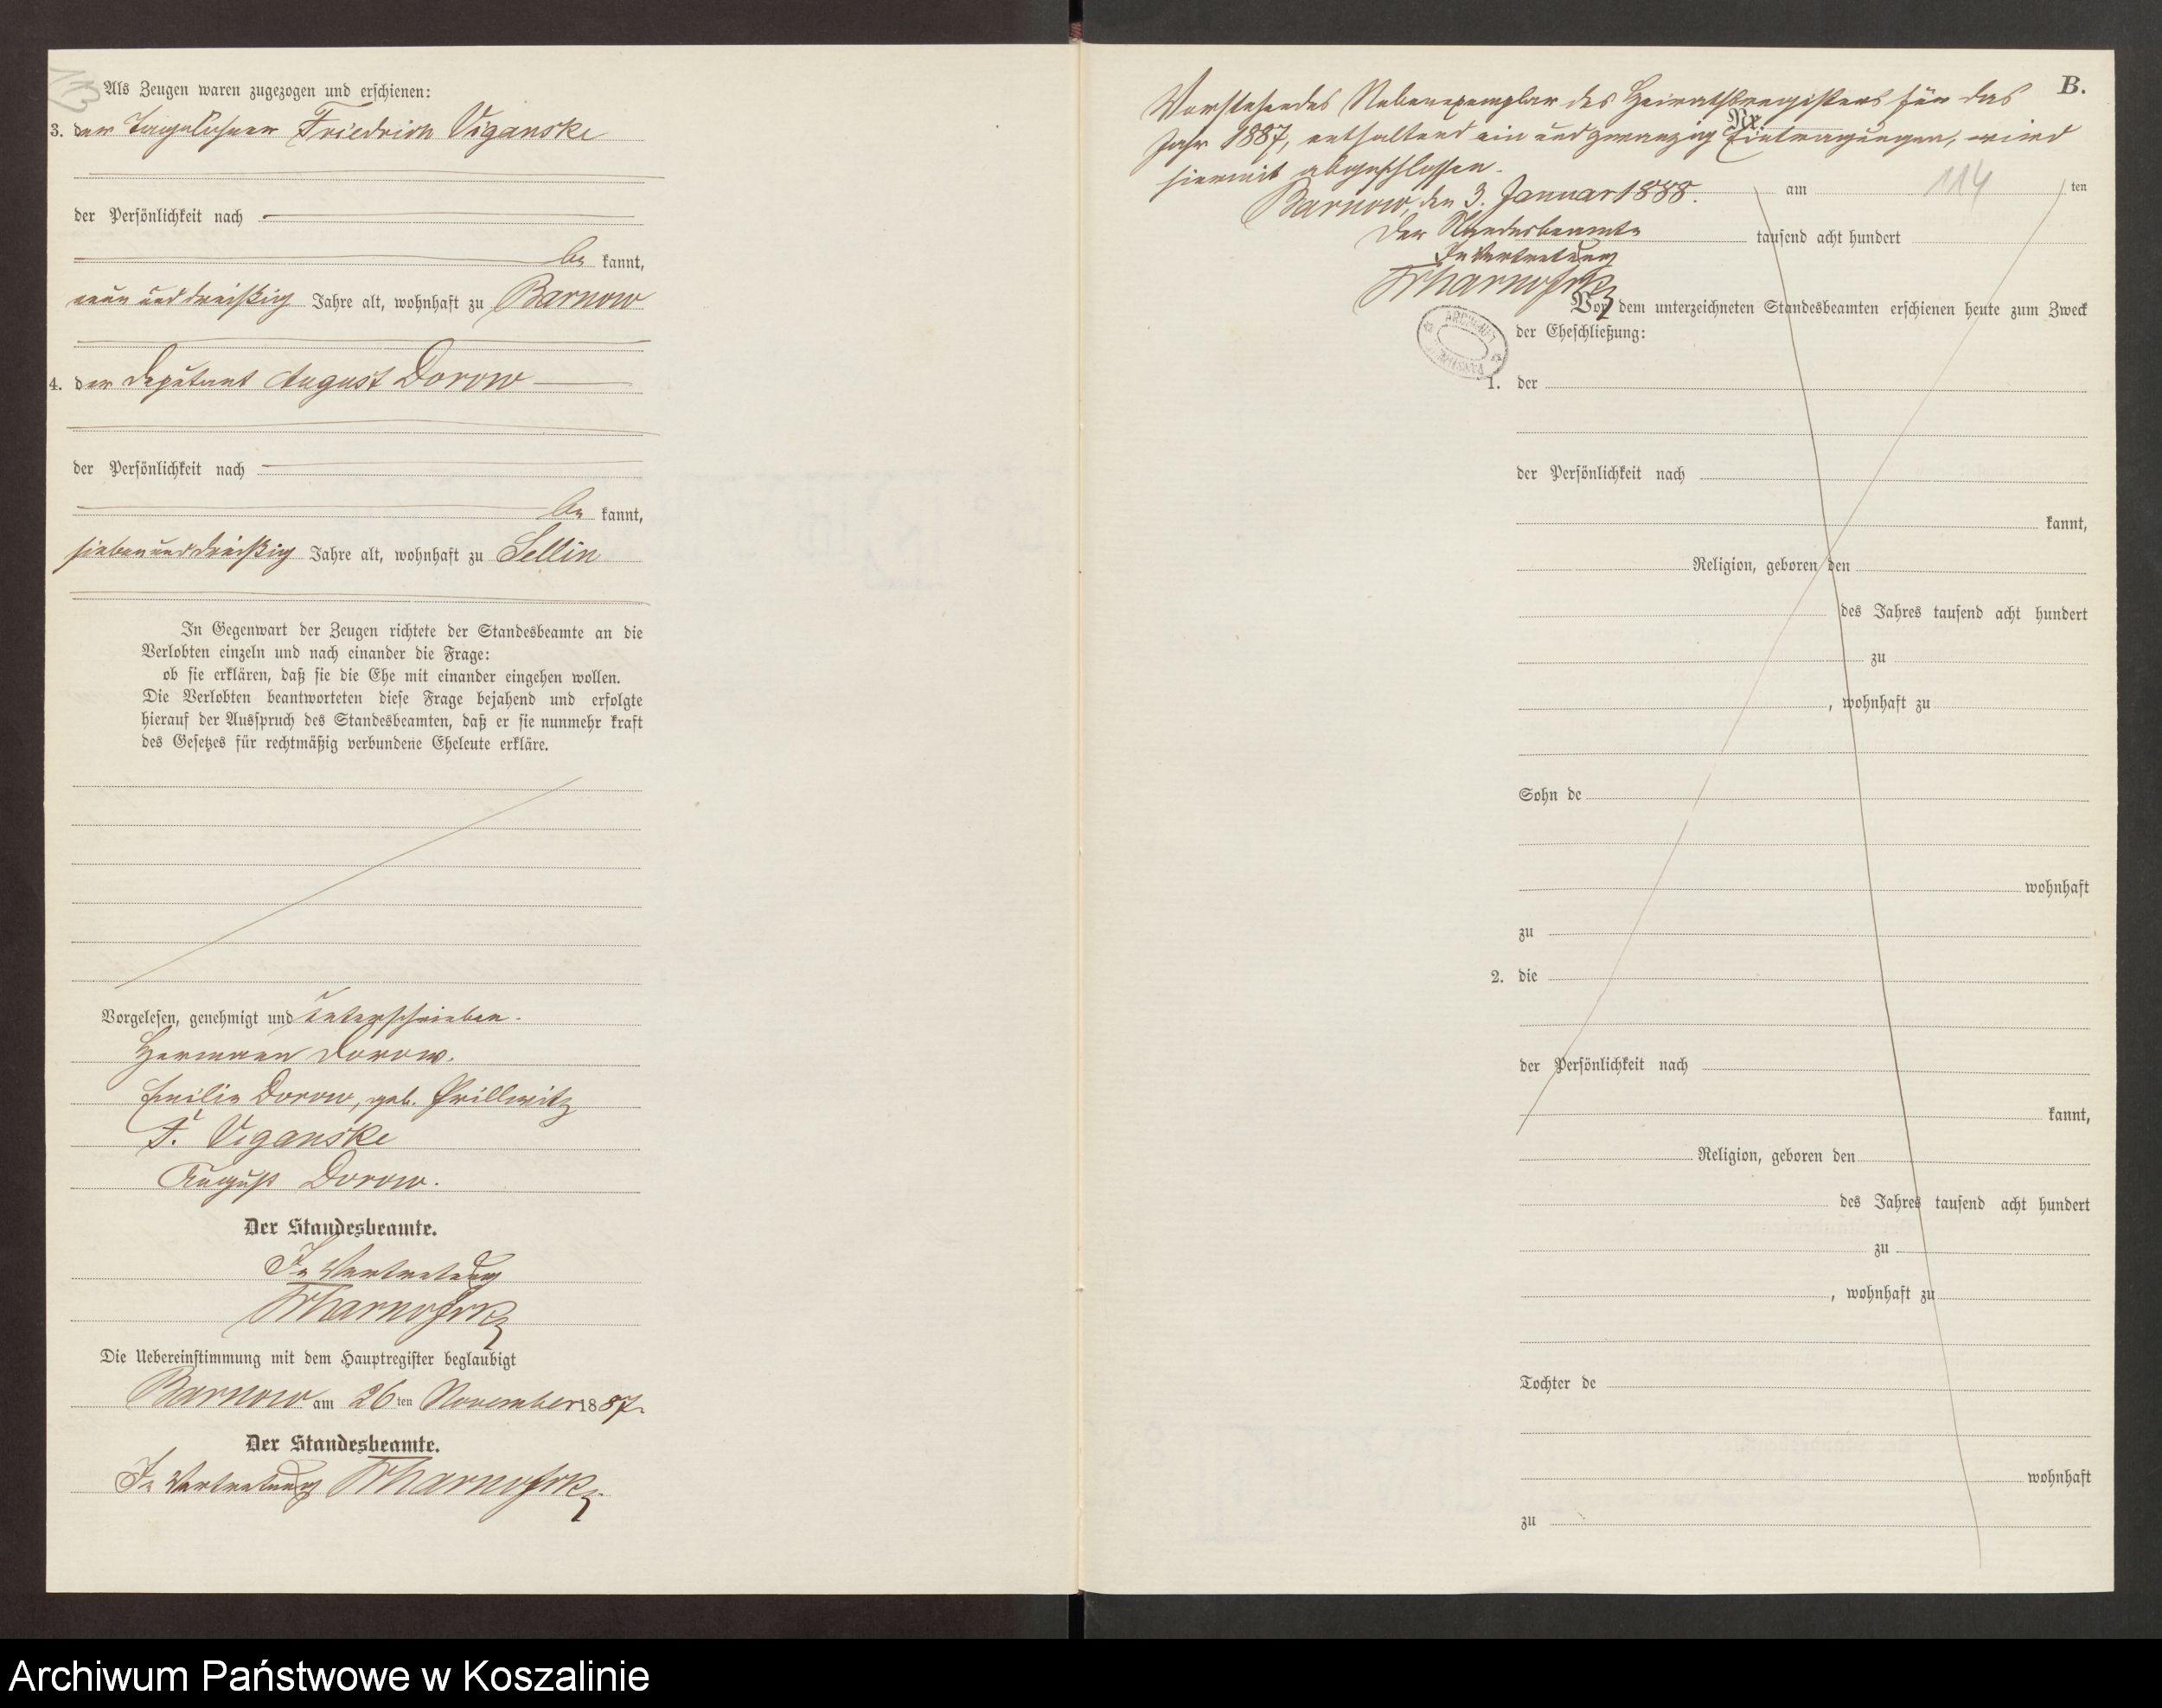 113
Als Zeugen waren zugezogen und erschienen:
3. der Tagelöhner Friedrich Viganske
der Persönlichkeit nach
be kannt,
neun und dreißig Jahre alt, wohnhaft zu Barnow
4. der Deputant August Dorow
der Persönlichkeit nach
be kannt,
sieben und dreißig Jahre alt, wohnhaft zu Sellin
In Gegenwart der Zeugen richtete der Standesbeamte an die
Verlobten einzeln und nach einander die Frage:
ob sie erklären, daß sie die Ehe mit einander eingehen wollen.
Die Verlobten beantworteten diese Frage bejahend und erfolgte
hierauf der Ausspruch des Standesbeamten, daß er sie nunmehr kraft
des Gesetzes für rechtmäßig verbundene Eheleute erkläre.
Vorgelesen, genehmigt und unterschrieben.
Hermann Dorow.
Emilie Dorow, geb. Prillwitz
F. Viganske
August Dorow.
Der Standesbeamte.
In Vertretung
Die Uebereinstimmung mit dem Hauptregister beglaubigt
Barnow am 26ten November 1887.
Der Standesbeamte.
In Vertretung
B.
Vorstehendes Nebenexemplar des Heirathsregisters für das
Jahr 1887, enthaltend ein und zwanzig Eintragungen, wird
hiermit abgeschlossen.
Barnow, den 3. Januar 1888.
Der Standesbeamte
In Vertretung
114
am ten
tausend acht hundert
Vor dem unterzeichneten Standesbeamten erschienen heute zum Zweck
der Eheschließung:
1. der
der Persönlichkeit nach
kannt,
Religion, geboren den
des Jahres tausend acht hundert
zu
, wohnhaft zu
Sohn de
wohnhaft
zu
2. die
der Persönlichkeit nach
kannt,
Religion, geboren den
des Jahres tausend acht hundert
zu
, wohnhaft zu
Tochter de
wohnhaft
zu
Archiwum Państwowe w Koszalinie